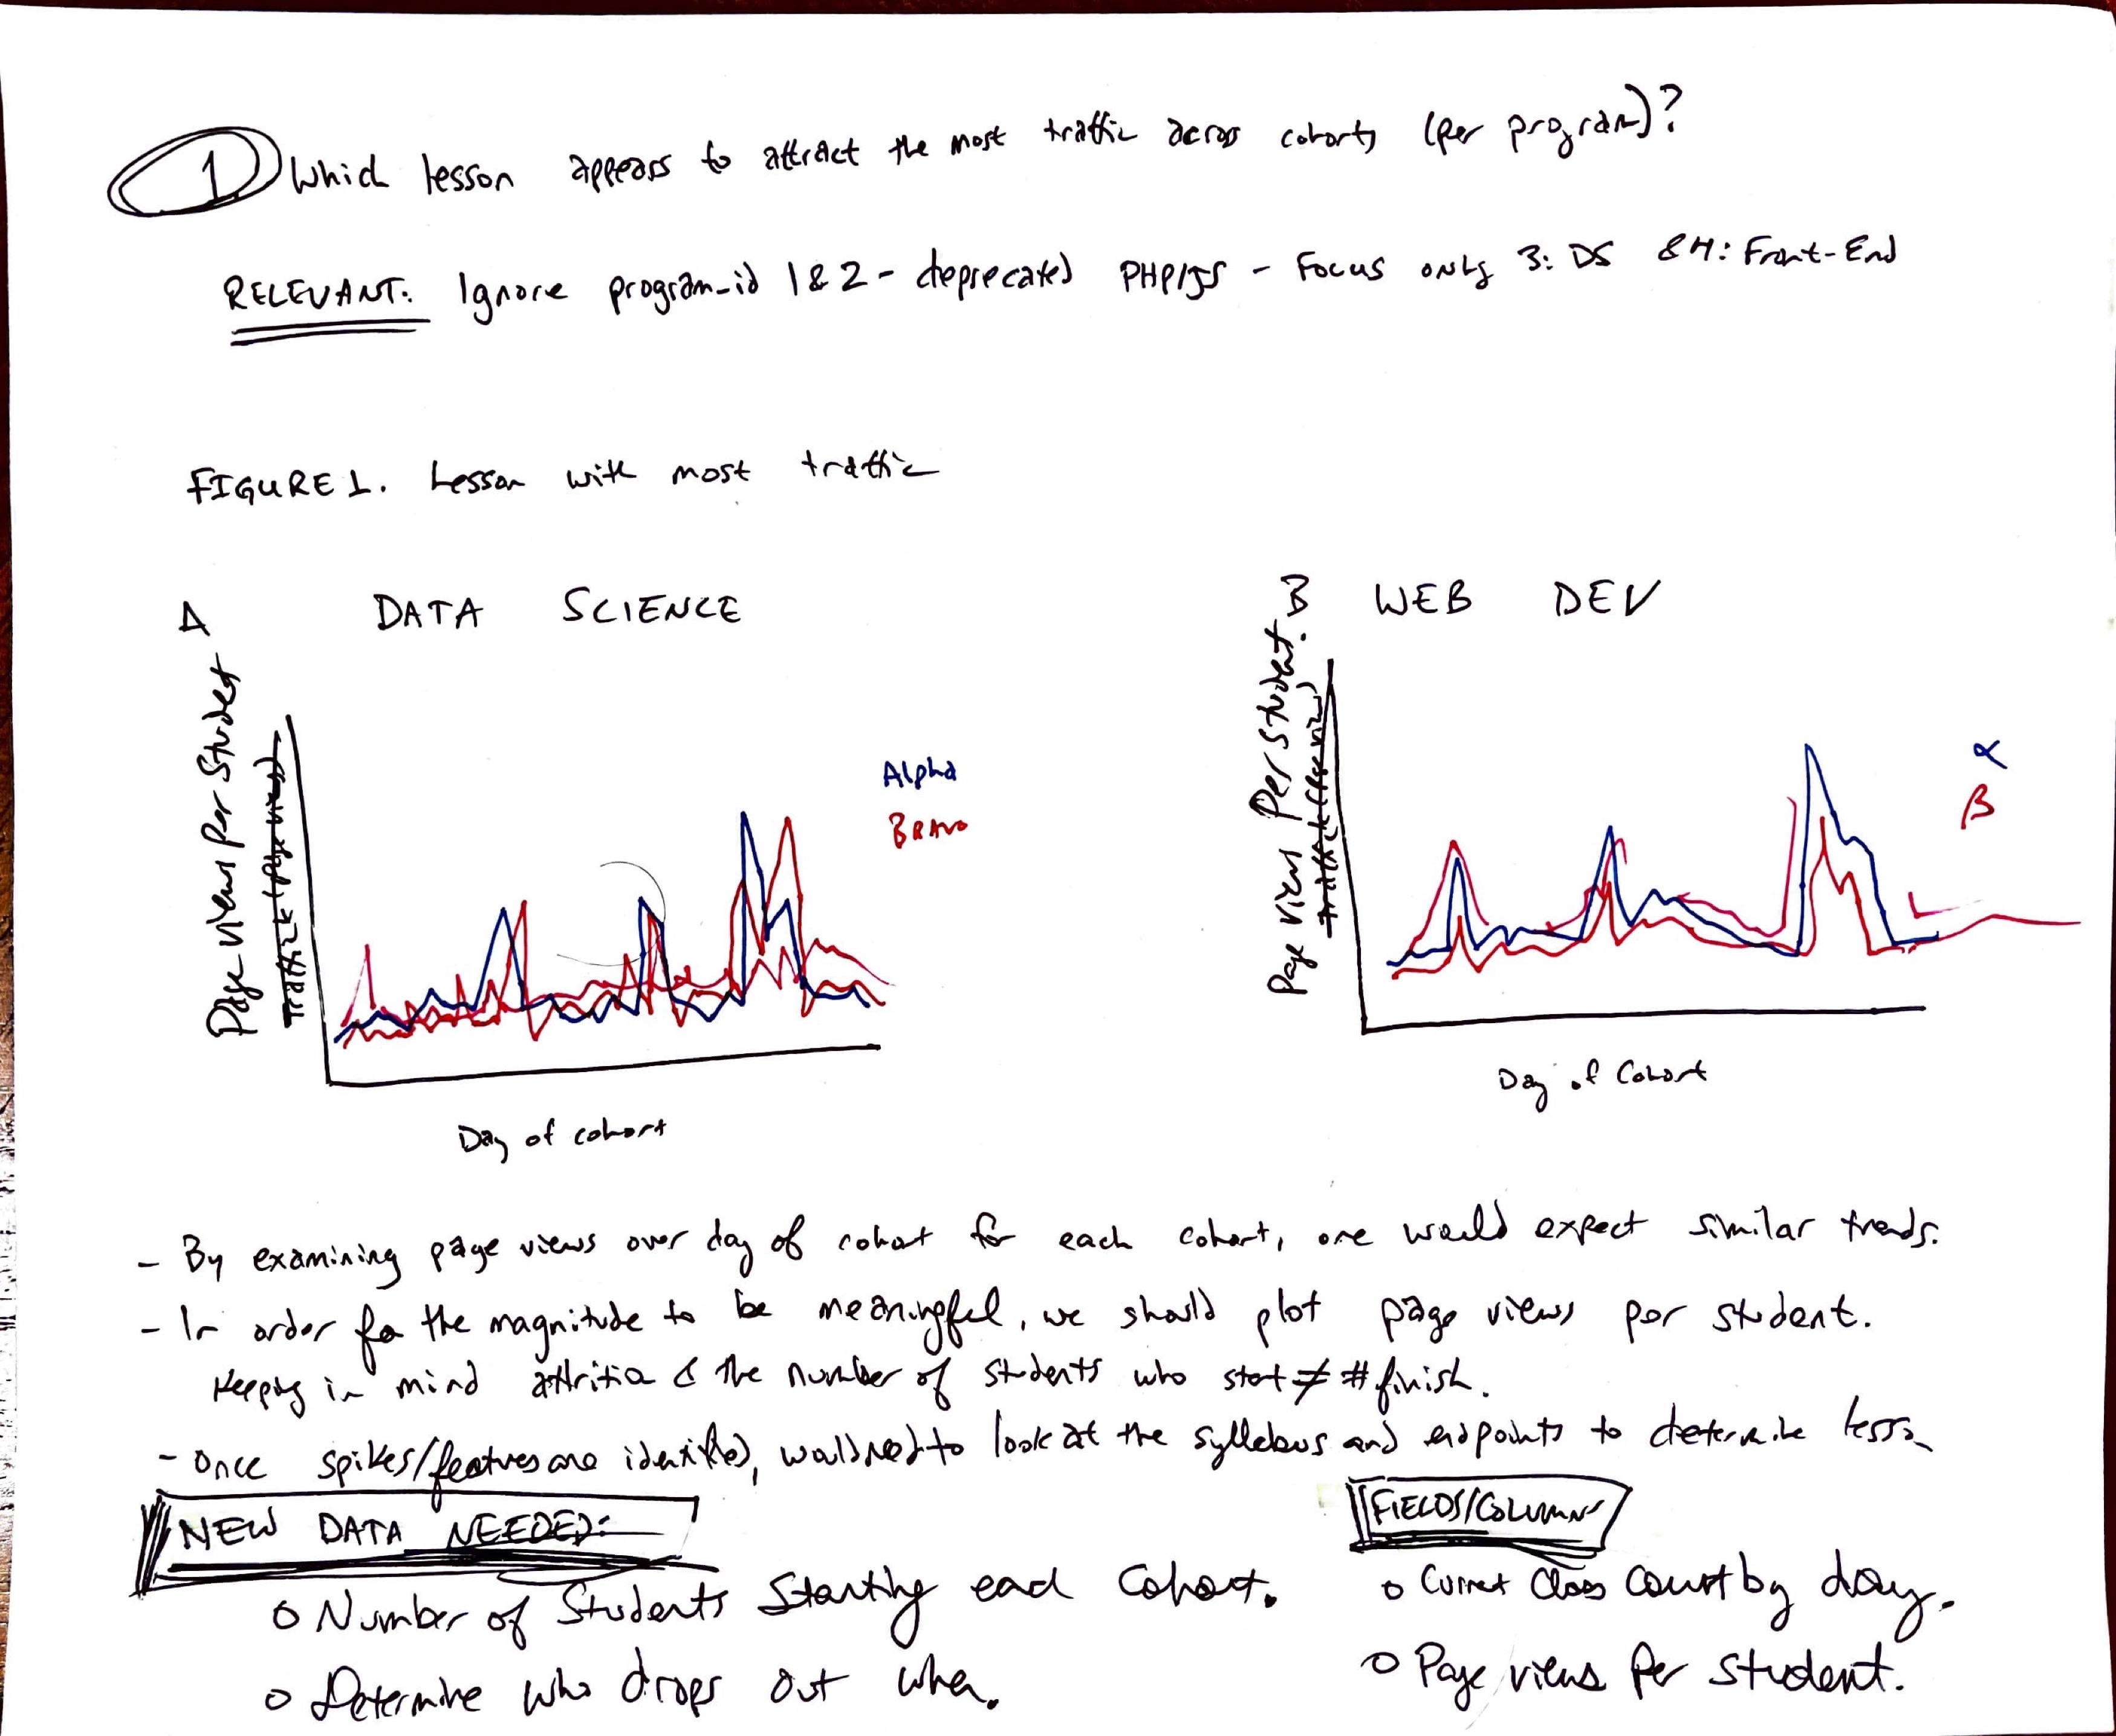 1 Which lesson appears to attract the most traffic across cohorts (per program)?
RELEVANT: Ignore program_id 1 & 2 - deprecated PHP/JS - Focus only 3: DS & 4: Front-End
FIGURE 1. Lesson with most traffic
A DATA SCIENCE
Page views per Student
Traffic (page views)
Alpha
Bravo
Day of cohort
B WEB DEV
Page views per student.
Traffic (page views)
α
β
Day of Cohort
- By examining page views over day of cohort for each cohort, one would expect similar trends.
- In order for the magnitude to be meaningful, we should plot page views per student.
Keeping in mind attritia & the number of students who start ≠ # finish.
- Once spikes/features are identified, would need to look at the syllabus and endpoints to determine lesson
NEW DATA NEEDED:
o Number of Students Starting each Cohort.
o Determine who drops out when.
FIELDS/COLUMNS
o Current Class Count by day.
o Page views Per Student.